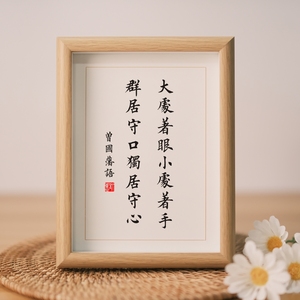 大處着眼小處着手
群居守口獨居守心
曾國藩語